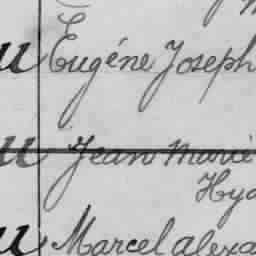 u Eugéne Joseph
u Jean Marie
Hya
u Marcel alexa